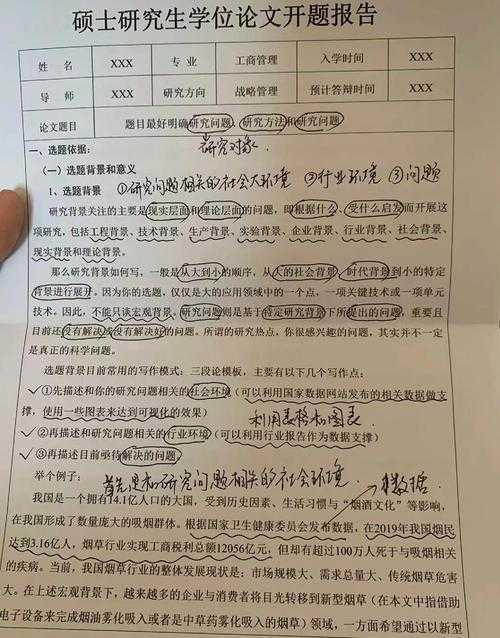 硕士研究生学位论文开题报告
姓 名 XXX 专 业 工商管理 入学时间 XXX
导 师 XXX 研究方向 战略管理 预计答辩时间 XXX
论文题目 题目最好明确研究问题，研究方法和研究问题
研究对象
一、选题依据：
（一）选题背景和意义
1、选题背景 ①研究问题相关的社会大环境 ②行业环境 ③问题
研究背景关注的主要是现实层面和理论层面的问题，即根据什么、受什么启发而开展这
项研究，包括工程背景、技术背景、生产背景、实验背景、企业背景、行业背景、社会背景、
现实背景和理论背景。
那么研究背景如何写，一般是从大到小的顺序，从大的社会背景、时代背景到小的特定
背景进行展开。因为你的选题，仅仅是大的应用领域中的一个点，一项关键技术或一项单元
技术。因此，不能只谈宏观背景。研究问题则是基于特定研究背景下所提出的问题，重要且
目前还没有解决或没有解决好的问题。所谓的研究热点，你很感兴趣的问题，其实并不一定
是真正的科学问题。
选题背景目前常用的写作模式：三段论模板，主要有以下几个写作点：
✓①先描述和你的研究问题相关的社会环境（可以利用国家数据网站发布的相关数据做支
撑，使用一些图表来达到可视化的效果） 利用表格和图表
✓②再描述和研究问题相关的行业环境（可以利用行业报告作为数据支撑）
✓③再描述目前亟待解决的问题。
举个例子：首先是和研究问题相关的社会环境 →数据
我国是一个拥有14.1亿人口的大国，受到历史因素、生活习惯与“烟酒文化”等影响，
在我国形成了数量庞大的吸烟群体。根据国家卫生健康委员会发布数据，在2019年我国烟民
达到3.16亿人，烟草行业实现工商税利总额12056亿元，但却有超过100万人死于与吸烟相关
的疾病。当前，我国烟草行业的整体发展现状是：市场规模大、需求总量大、传统烟草危害
大。在上述宏观背景下，越来越多的企业与消费者将目光转移到新型烟草（在本文中指借助
电子设备来完成烟油雾化吸入或者是中草药雾化吸入的烟草）领域，一方面希望通过以新型